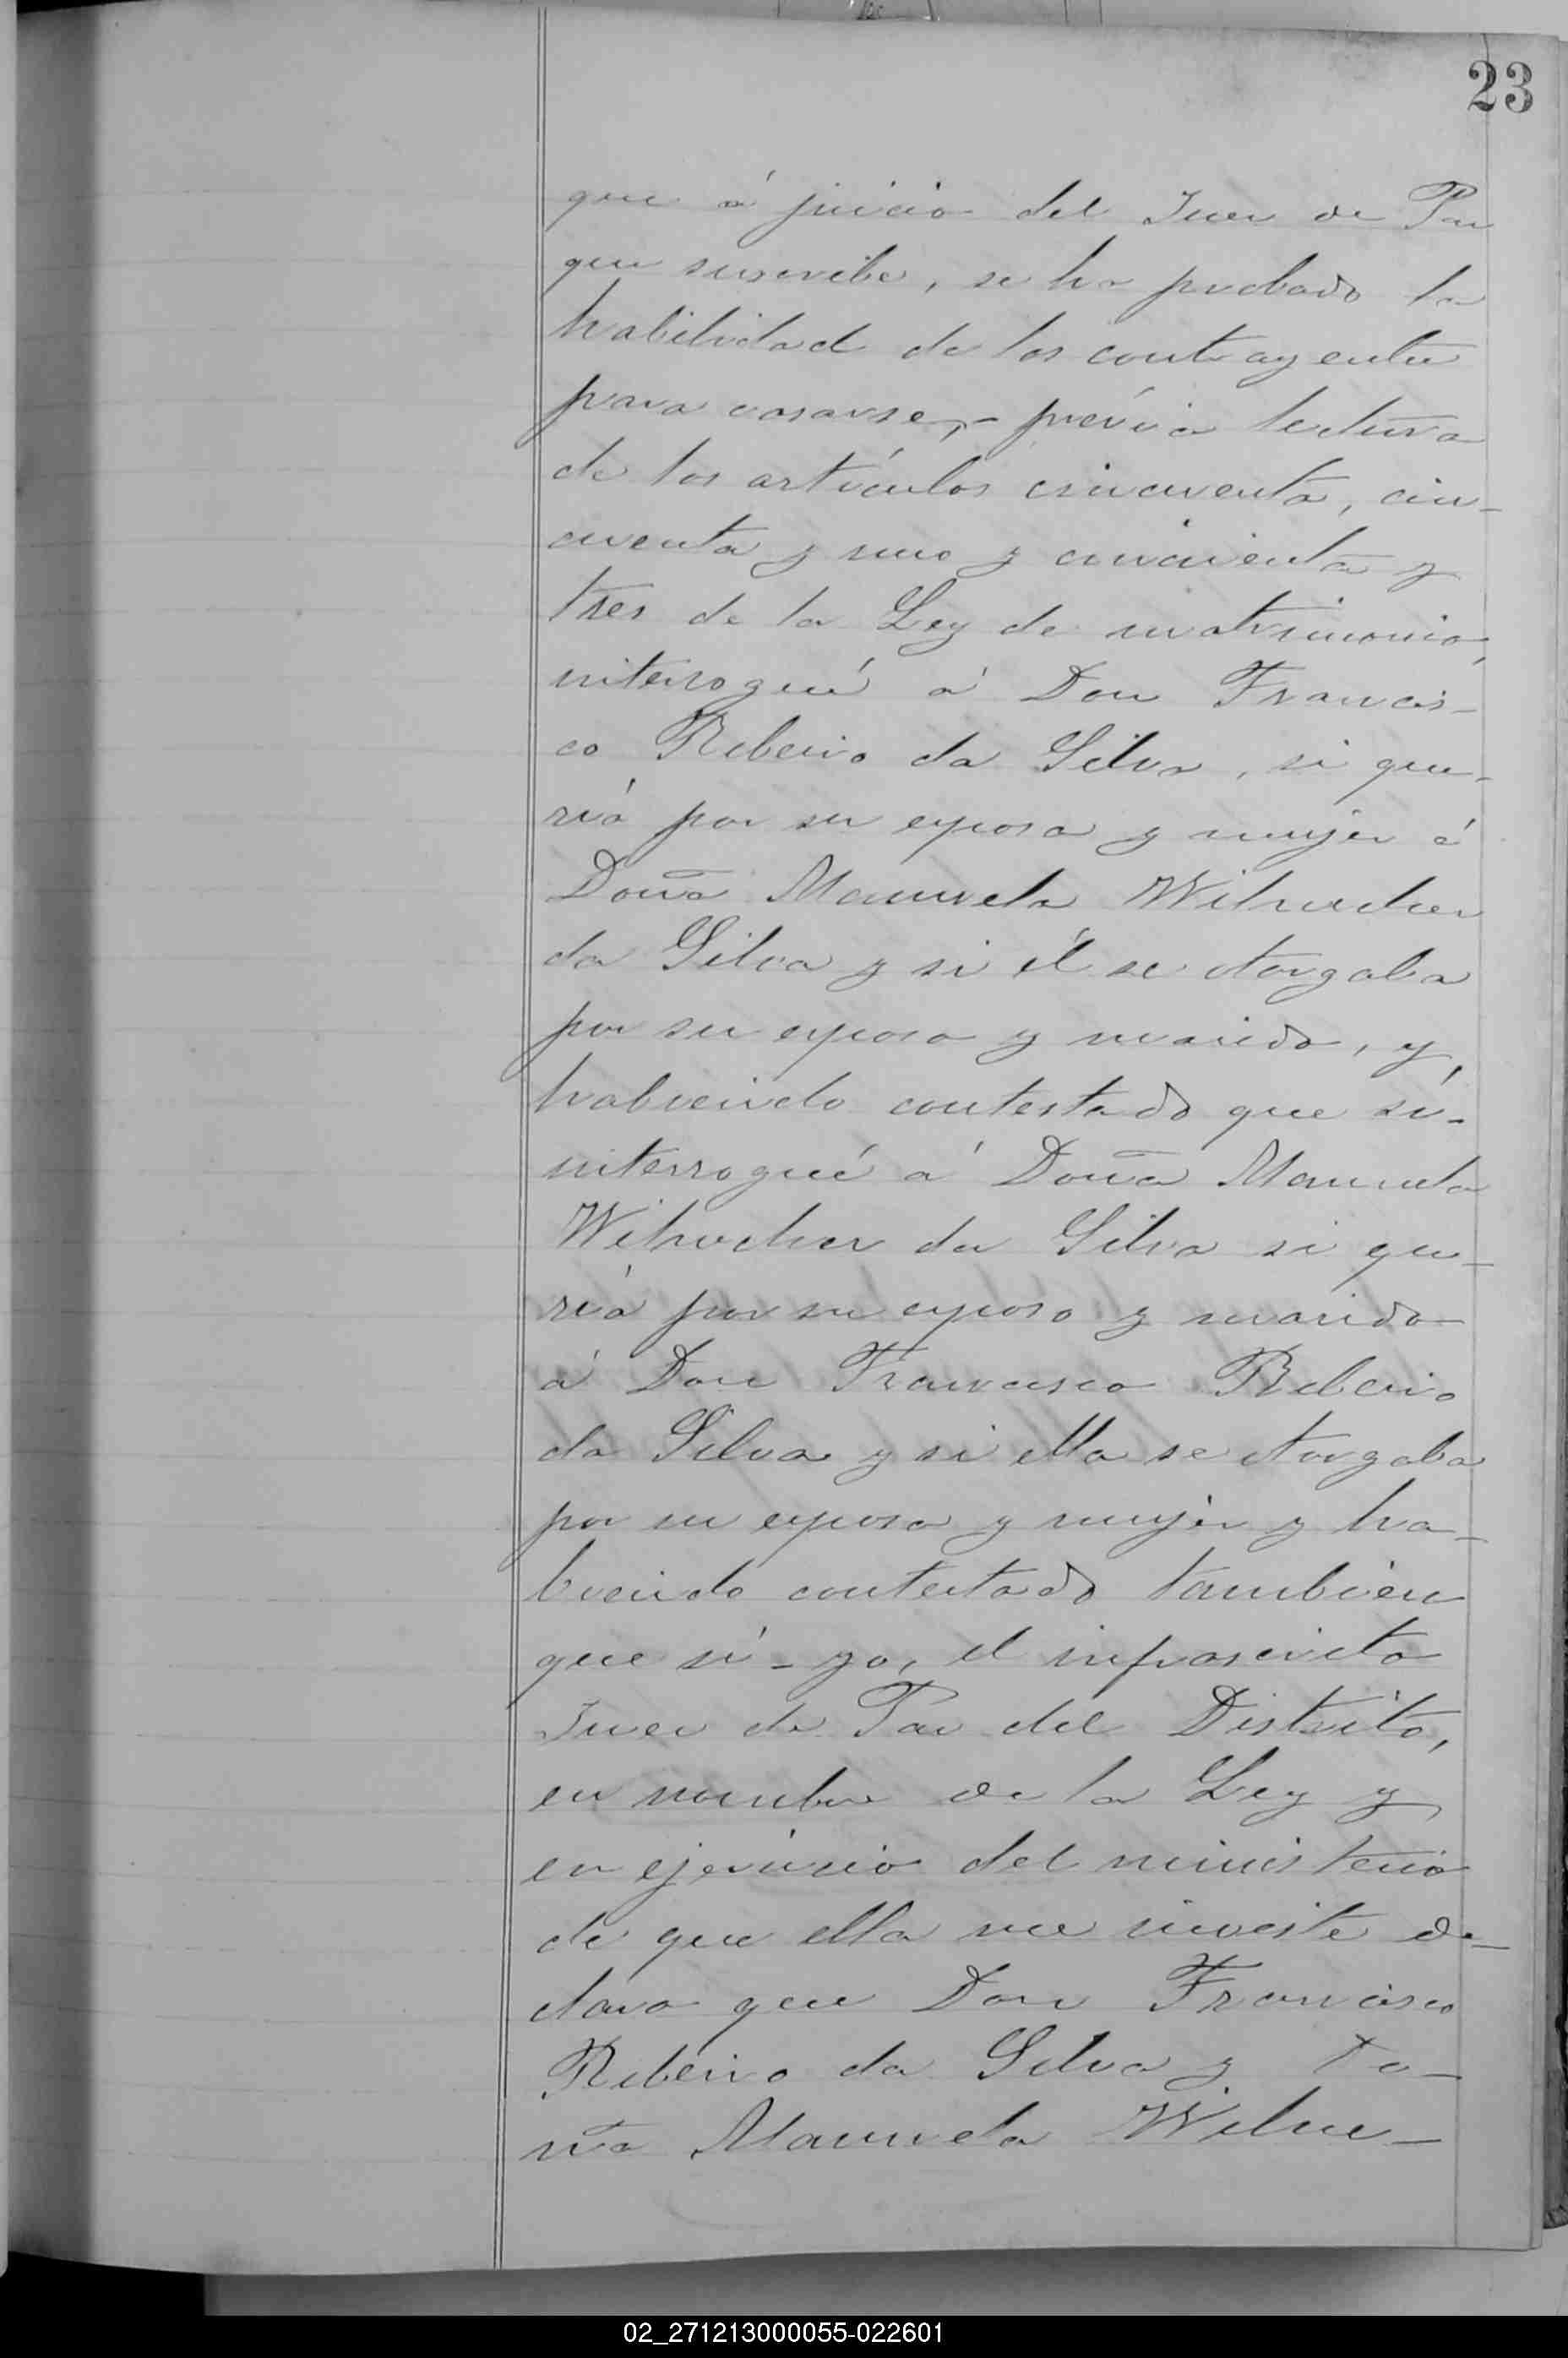 23
que á juicio del Juez de Paz
que suscribe, se ha probado la
habilidad de los contrayentes
para casarse,- prévia lectura
de los artículos cincuenta, cin-
cuenta y uno y cincuenta y
tres de la Ley de matrimonio,
interrogué á Don Francis-
co Ribeiro da Silva, si que-
ría por su esposa y mujer á
Doña Manuela
da Silva y si él se otorgaba
por su esposo y marido, y,
habiendo contestado que sí-
interrogué á Doña Manuela
da Silva si que-
ría por su esposo y marido
á Don Francisco Ribeiro
da Silva y si ella se otorgaba
por su esposa y mujer y ha-
biendo contestado tambien
que sí - yo, el infrascrito
Juez de Paz del Distrito,
en nombre de la Ley y
en ejercicio del ministerio
de que ella me inviste de-
claro que Don Francisco
Ribeiro da Silva y Do-
ña Manuela
02_271213000055-022601